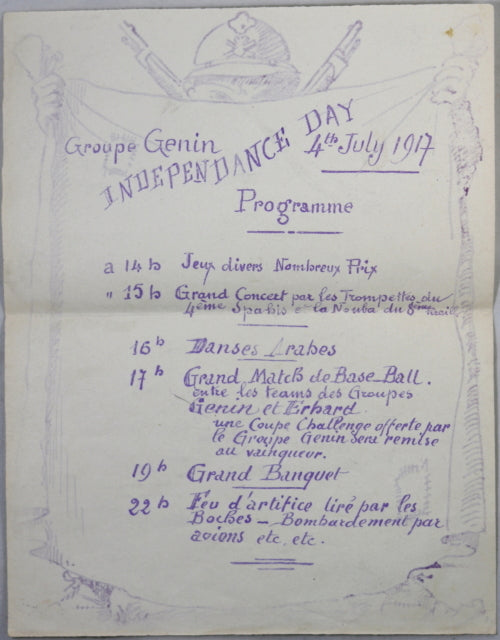 Groupe Genin
INDEPENDANCE DAY
4th July 1917
Programme
a 14h Jeux divers Nombreux Prix
" 15h Grand Concert par les Trompettes du
4ème Spahis et la Nouba du 8ème
16h Danses Arabes
17h Grand Match de Base-Ball.
entre les teams des Groupes
Genin et Erhard
une Coupe Challenge offerte par
le Groupe Genin sera remise
au vainqueur.
19h Grand Banquet
22h Feu d'artifice tiré par les
Boches - Bombardement par
avions etc. etc.